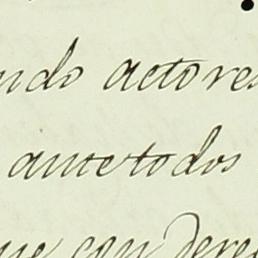 ndo actores
ante todos
ue con derec